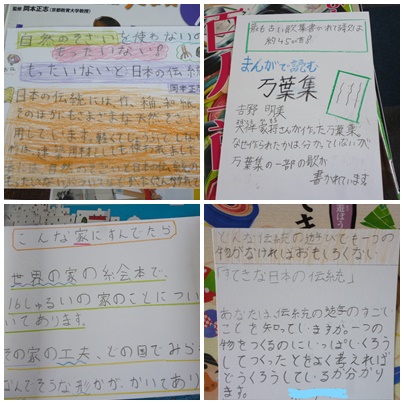 監修 岡本正志(京都教育大学教授)
自然のそざいを使わないの
もったいない!
もったいないと日本の伝統
岡本正志
日本の伝統には、竹、稲、和紙
そのほかにもさまざまな天然そ
用しています。軽くて
最も古い歌
約450年?
まんがで読む
万葉集
吉野 明美
大伴家持さんがイ作った万葉集、
なぜ作られたかは分かっていないが
万葉集の一部の歌が
書かれています。
こんな家にすんでたら
世界の家の絵本で、
16しゅるいの家のことについ
いてあります。
その家の工夫、どの国でみら
なんでそうな形かが、かいてあり
どんな伝統の遊びでも一つの
物がなければおもしろくない
「すてきな日本の伝統」
あなたは、伝統の遊びのすごい
ことを知っていますが、一つの
物をつくるのにいっぱいくろう
してつくったとよく考えれば
どうくろうしているか分かり
ます。